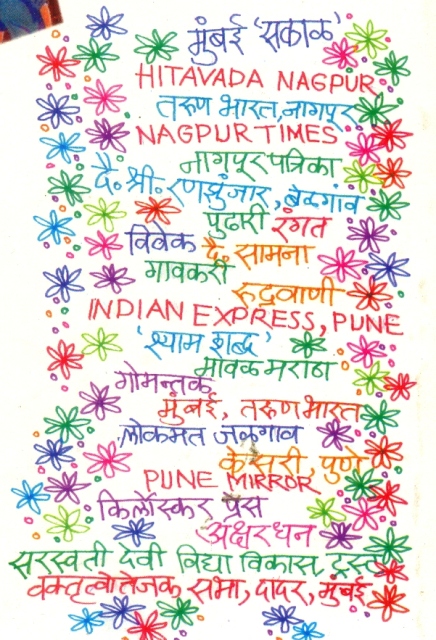 मुंबई 'सकाळ'
HITAVADA NAGPUR
तरुण भारत, नागपूर
NAGPUR TIMES
नागपूर पत्रिका
दै. श्री. रणझुंजार, बेळगांव
पुढारी रंगत
विवेक दै. सामना
गावकरी
रुद्रवाणी
INDIAN EXPRESS, PUNE
'श्याम शब्द'
मावळ मराठा
गोमन्तक
मुंबई, तरुण भारत
लोकमत जळगाव
केसरी, पुणे
PUNE MIRROR
किर्लोस्कर प्रेस
अक्षरधन
सरस्वती देवी विद्या विकास, ट्रस्ट
वक्तृत्वोत्तेजक सभा, दादर, मुंबई